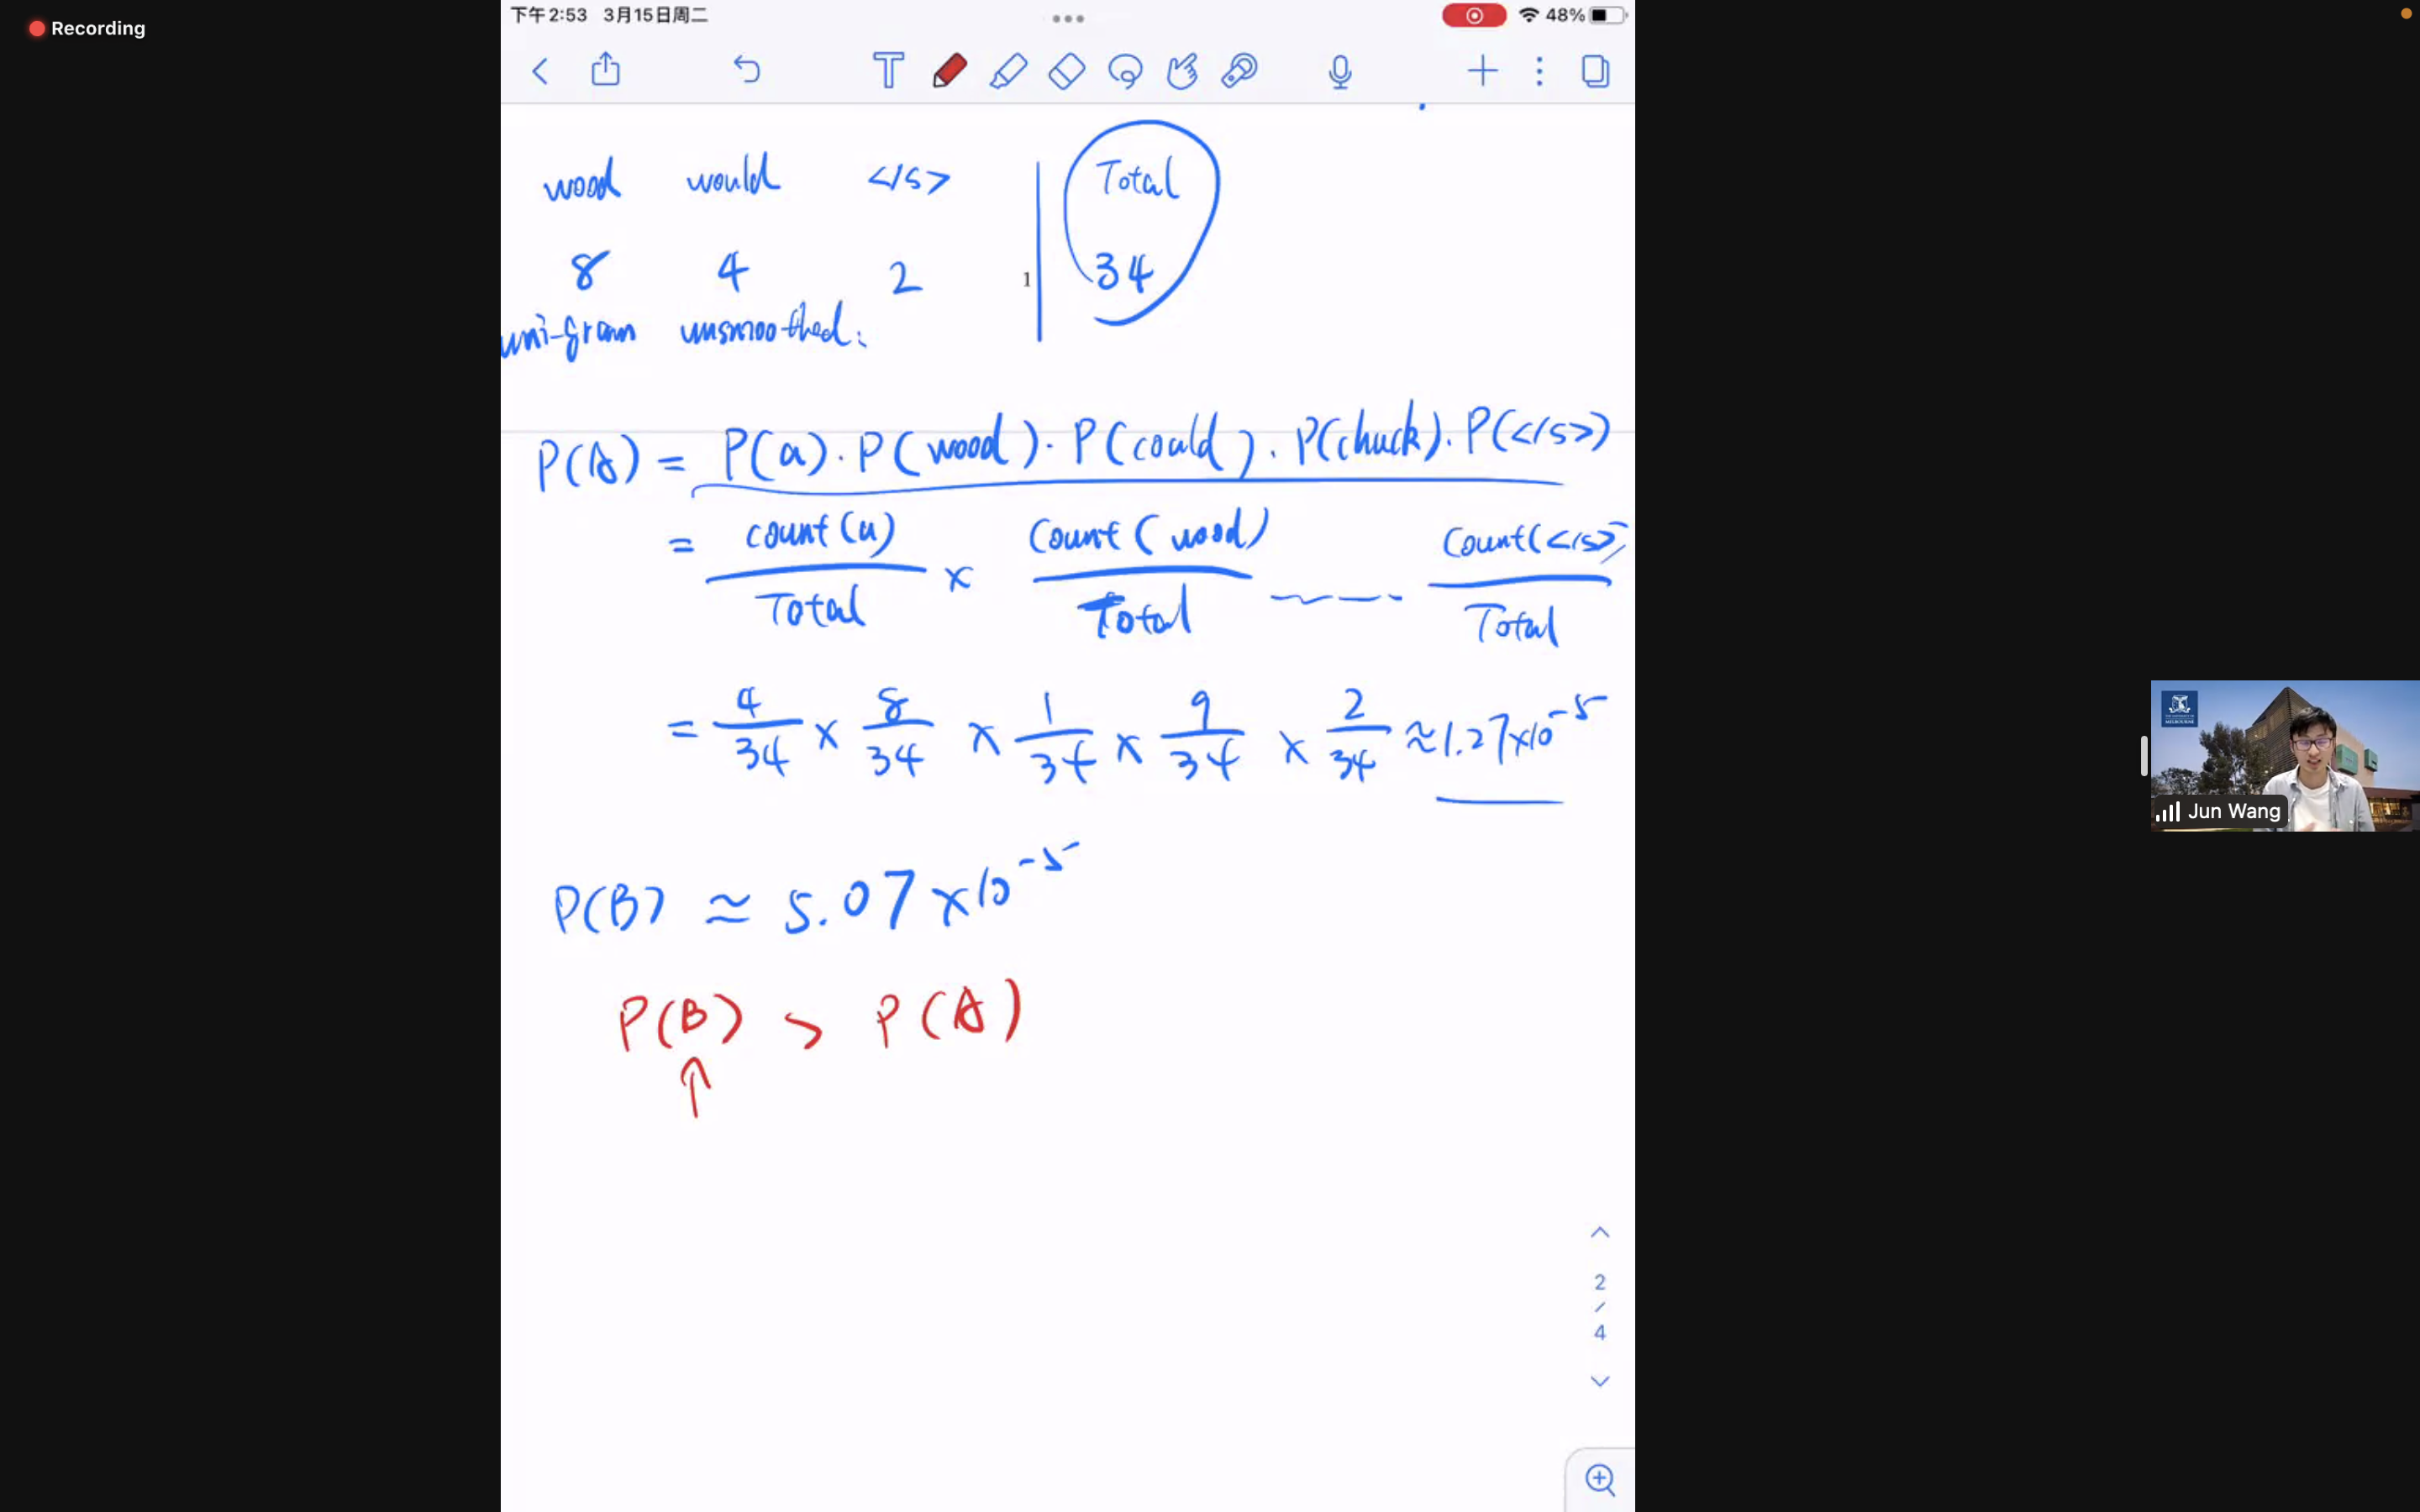 Recording
下午2:53 3月15日周二
48%
wood would </s> Total
8 4 2 1 34
uni-gram unsmoothed:
P(A) = P(a) · P(wood) · P(could) · P(chuck) · P(</s>)
= count(a)/Total × Count(wood)/Total ----- Count(</s>)/Total
= 4/34 × 8/34 × 1/34 × 9/34 × 2/34 ≈ 1.27×10⁻⁵
P(B) ≈ 5.07×10⁻⁵
P(B) > P(A)
↑
2
/
4
Jun Wang